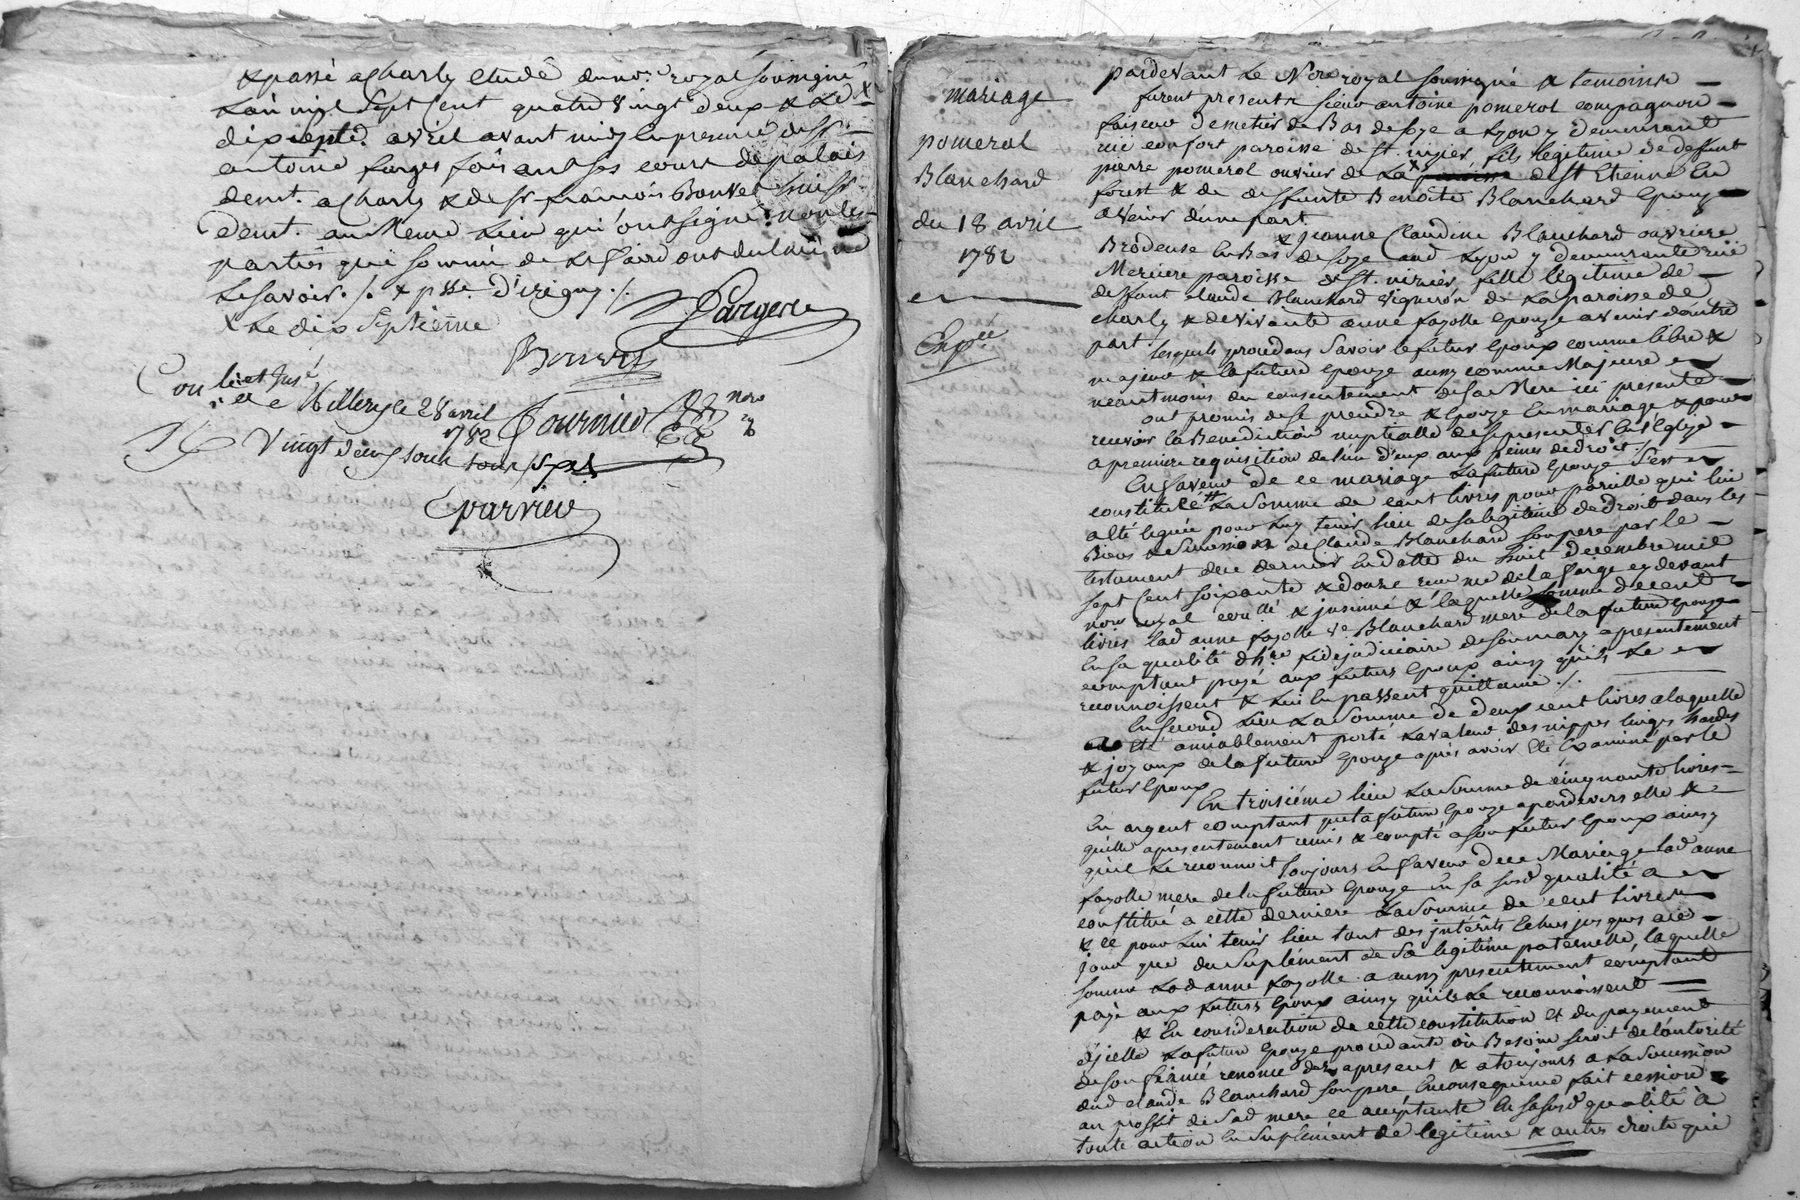 & passé a Charly etude du no.re royal soussigné
L'an mil sept cent quatre vingt deux & Le x
dix sept.e avril avant midy en presence du sr.
antoine farges faisant ses cours de palais
demt. a Charly & de sr francois Bonnet
demt. au meme Lieu qui ont signé non les
parties qui sommé de Le faire ont dit ne
Le savoir ./. x psse. d'irigny ./.
x Le dix septieme
Fargere
Bonnet
Con.lé et Insé
a Millery le 28 avril
1782
Vingt deux sous
mariage
pomerol
Blanchard
du 18 avril
1782
Exp.ée
pardevant Le N.re royal soussigné & temoins
furent presents sieur antoine pomerol compagnon
faiseur de metier de Bas de soye a Lyon y demeurant
rue confort paroisse de st. nizier, fils legitime de defunt
pierre pomerol ouvrier de La de st Etienne en
forest & de deffunte Benoite Blanchard Epoux
avenir d'une part
& Jeanne Claudine Blanchard ouvriere
Brodeuse en Bas de soye aud Lyon y demeurante rue
Merciere paroisse de st. nizier, fille legitime de
deffunt claude Blanchard vigneron de La paroisse de
charly & de vivante anne fayolle Epouze avenir d'autre
part.
lesquels procedans Savoir le futur Epoux comme libre &
majeur & la future Epouze aussy comme Majeure
neantmoins du consentement de sa Mere ici presente
ont promis de se prendre & Epouzer En mariage & pour
recevoir la Benediction nuptialle de se presenter En l'Eglize
a premiere requisition de lun d'eux aux peines de droit ./.
En faveur de ce mariage La future Epouze s'est
constitué La somme de cent livres pour pareille qui lui
a été leguée pour luy tenir lieu de sa legitime de droit dans les
Biens & succession de Claude Blanchard son pere par le
testament de ce dernier En datte du huit decembre mil
sept Cent soixante & douze recu me de la farge cy devant
nore royal con.llé & insinué & laquelle somme de cent
livres lad anne fayolle ve. Blanchard mere de la future Epouze
En sa qualité dh.re fidejudiciaire de son mary a presentement
comptant payé aux futurs Epoux ainsy qu'ils Le
reconnoissent & lui En passent quittance ./.
En second lieu La somme de deux cent livres a laquelle
a été amiablement porté La valeur des nippes linges hardes
& joyaux de la future Epouze après avoir Eté Examiné par le
futur Epoux
En troisiéme lieu La somme de cinquante livres
En argent comptant que la future Epouze a pardevers elle &
qu'elle a presentement remis & compté a son futur Epoux ainsy
qu'il Le reconnoit Toujours En faveur de ce Mariage lad anne
fayolle mere de la future Epouze En sa susd qualité a
constitué a cette derniere La somme de cent livres
& ce pour Lui tenir lieu tant des intérêts Echus jusques a ce
jour que du Suplément de Sa legitime paternelle, laquelle
somme Lad anne fayolle a aussy presentement comptant
payé aux futurs Epoux ainsy qu'ils Le reconnoissent
& En consideration de cette constitution Et du payement
d'icelle La future Epouze procedante où Besoins seroit de l'autorité
de son fiancé renonce dez apresent & atoujours a La succession
dud claude Blanchard son pere En consequence fait cession
au proffit de sad mere ce acceptante En sa susd qualité à
toute action En suplément de legitime & autres droits qui